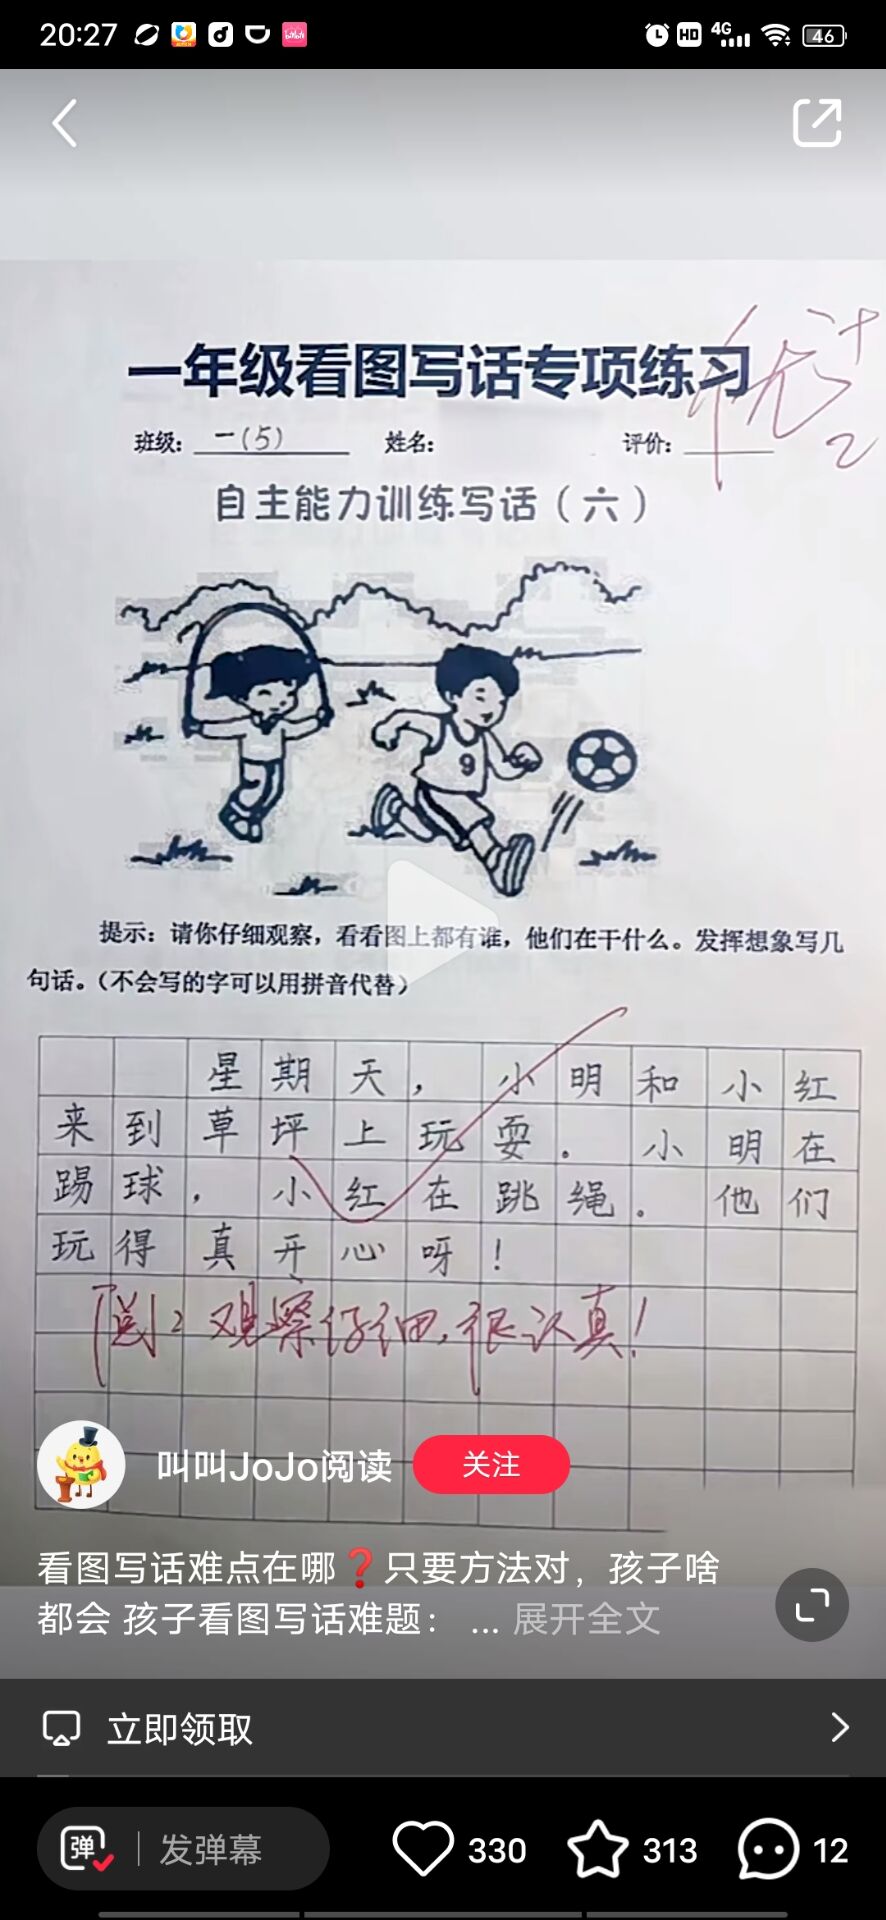 20:27
HD 4G 46
一年级看图写话专项练习
优++
2
班级: 一(5) 姓名: 评价:
自主能力训练写话(六)
9
提示:请你仔细观察,看看图上都有谁,他们在干什么。发挥想象写几
句话。(不会写的字可以用拼音代替)
星期天,小明和小红
来到草坪上玩耍。小明在
踢球,小红在跳绳。他们
玩得真开心呀!
观察仔细,很认真!
叫叫JoJo阅读 关注
看图写话难点在哪❓只要方法对,孩子啥
都会 孩子看图写话难题: ... 展开全文
立即领取
弹 发弹幕 330 313 12